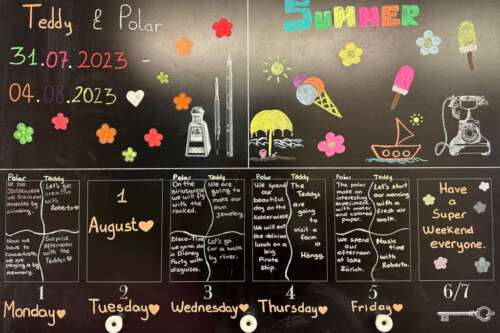 Teddy & Polar
31.07.2023 -
04.08.2023
SUMMER
Polar
Teddy
In the
we train our
muscles by
climbing.
Let's get
creative
with
Roberto
Now we
have to
concentrate,
we are
playing a big
memory.
Surprise
afternoon
with the
Teddys
1
August
Polar
Teddy
On the
we will fly
with the
rocked.
We are
going to
make our
own
jewellery.
Disco-Time
we gonna do
a Disney
Party with
disguises.
Let's go
for a walk
by river.
Polar
Teddy
We spend
our
beautiful
day on the
We will eat
the delicious
lunch on a
big
Pirate
ship.
The
Teddys
are
going
to
visit a
farm
in
Höngg.
Polar
Teddy
The polar
make an
interesting
experiment
with water
and colored
paper.
Let's start
our
morning
with a
fresh air
walk.
We spend
our
afternoon
at lake
Zürich.
Music
time
with
Roberto.
Have
a
Super
Weekend
everyone.
1
2
3
4
5
6/7
Monday
Tuesday
Wednesday
Thursday
Friday